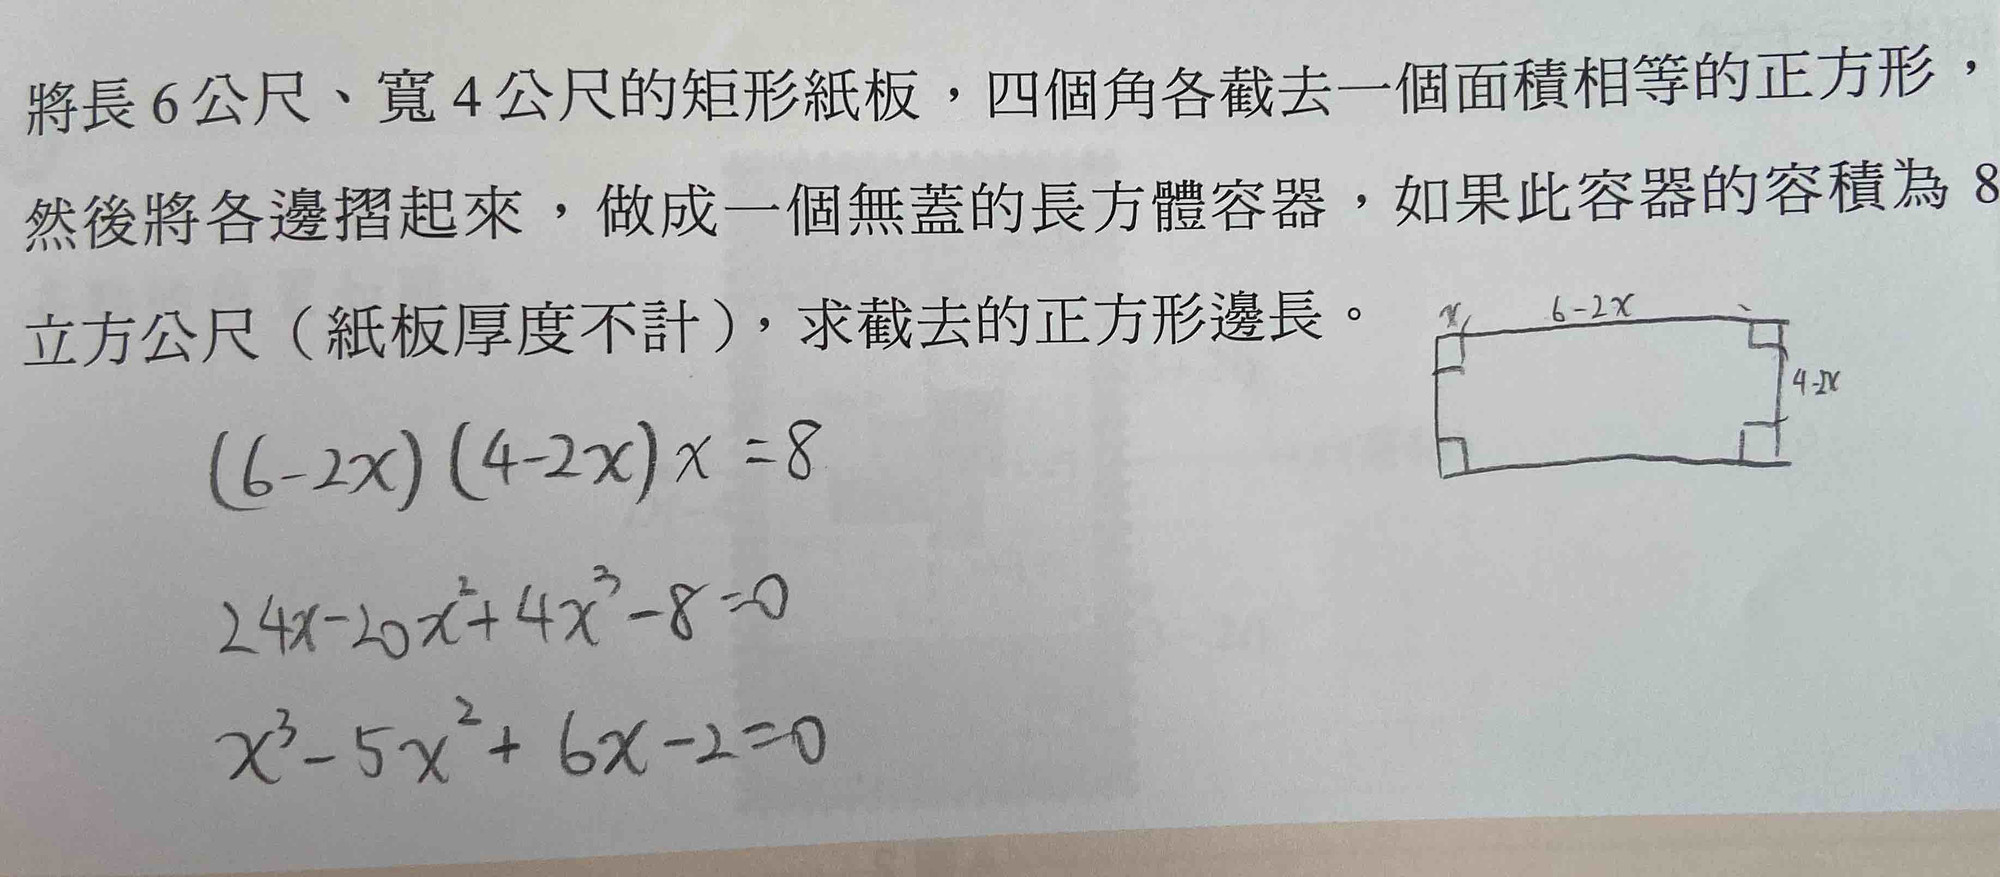 將長6公尺、寬4公尺的矩形紙板，四個角各截去一個面積相等的正方形，
然後將各邊摺起來，做成一個無蓋的長方體容器，如果此容器的容積為 8
立方公尺（紙板厚度不計），求截去的正方形邊長。
x 6-2x
4-2x
(6-2x)(4-2x)x=8
24x-20x²+4x³-8=0
x³-5x²+6x-2=0